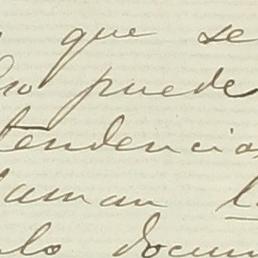 que se
puede
tendencia
laman l
lo docum